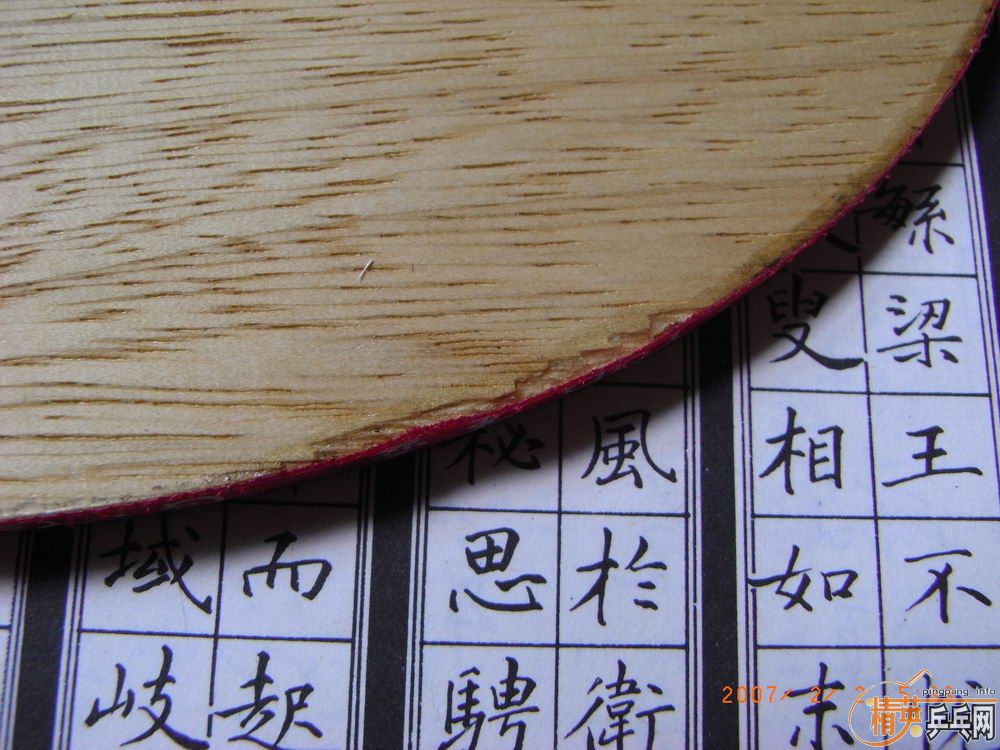 繁梁王不
叟相如末
風於衛
秘思騁
而起
域岐
2007/ 2/ 2
pingpang.info
精英乒乓网